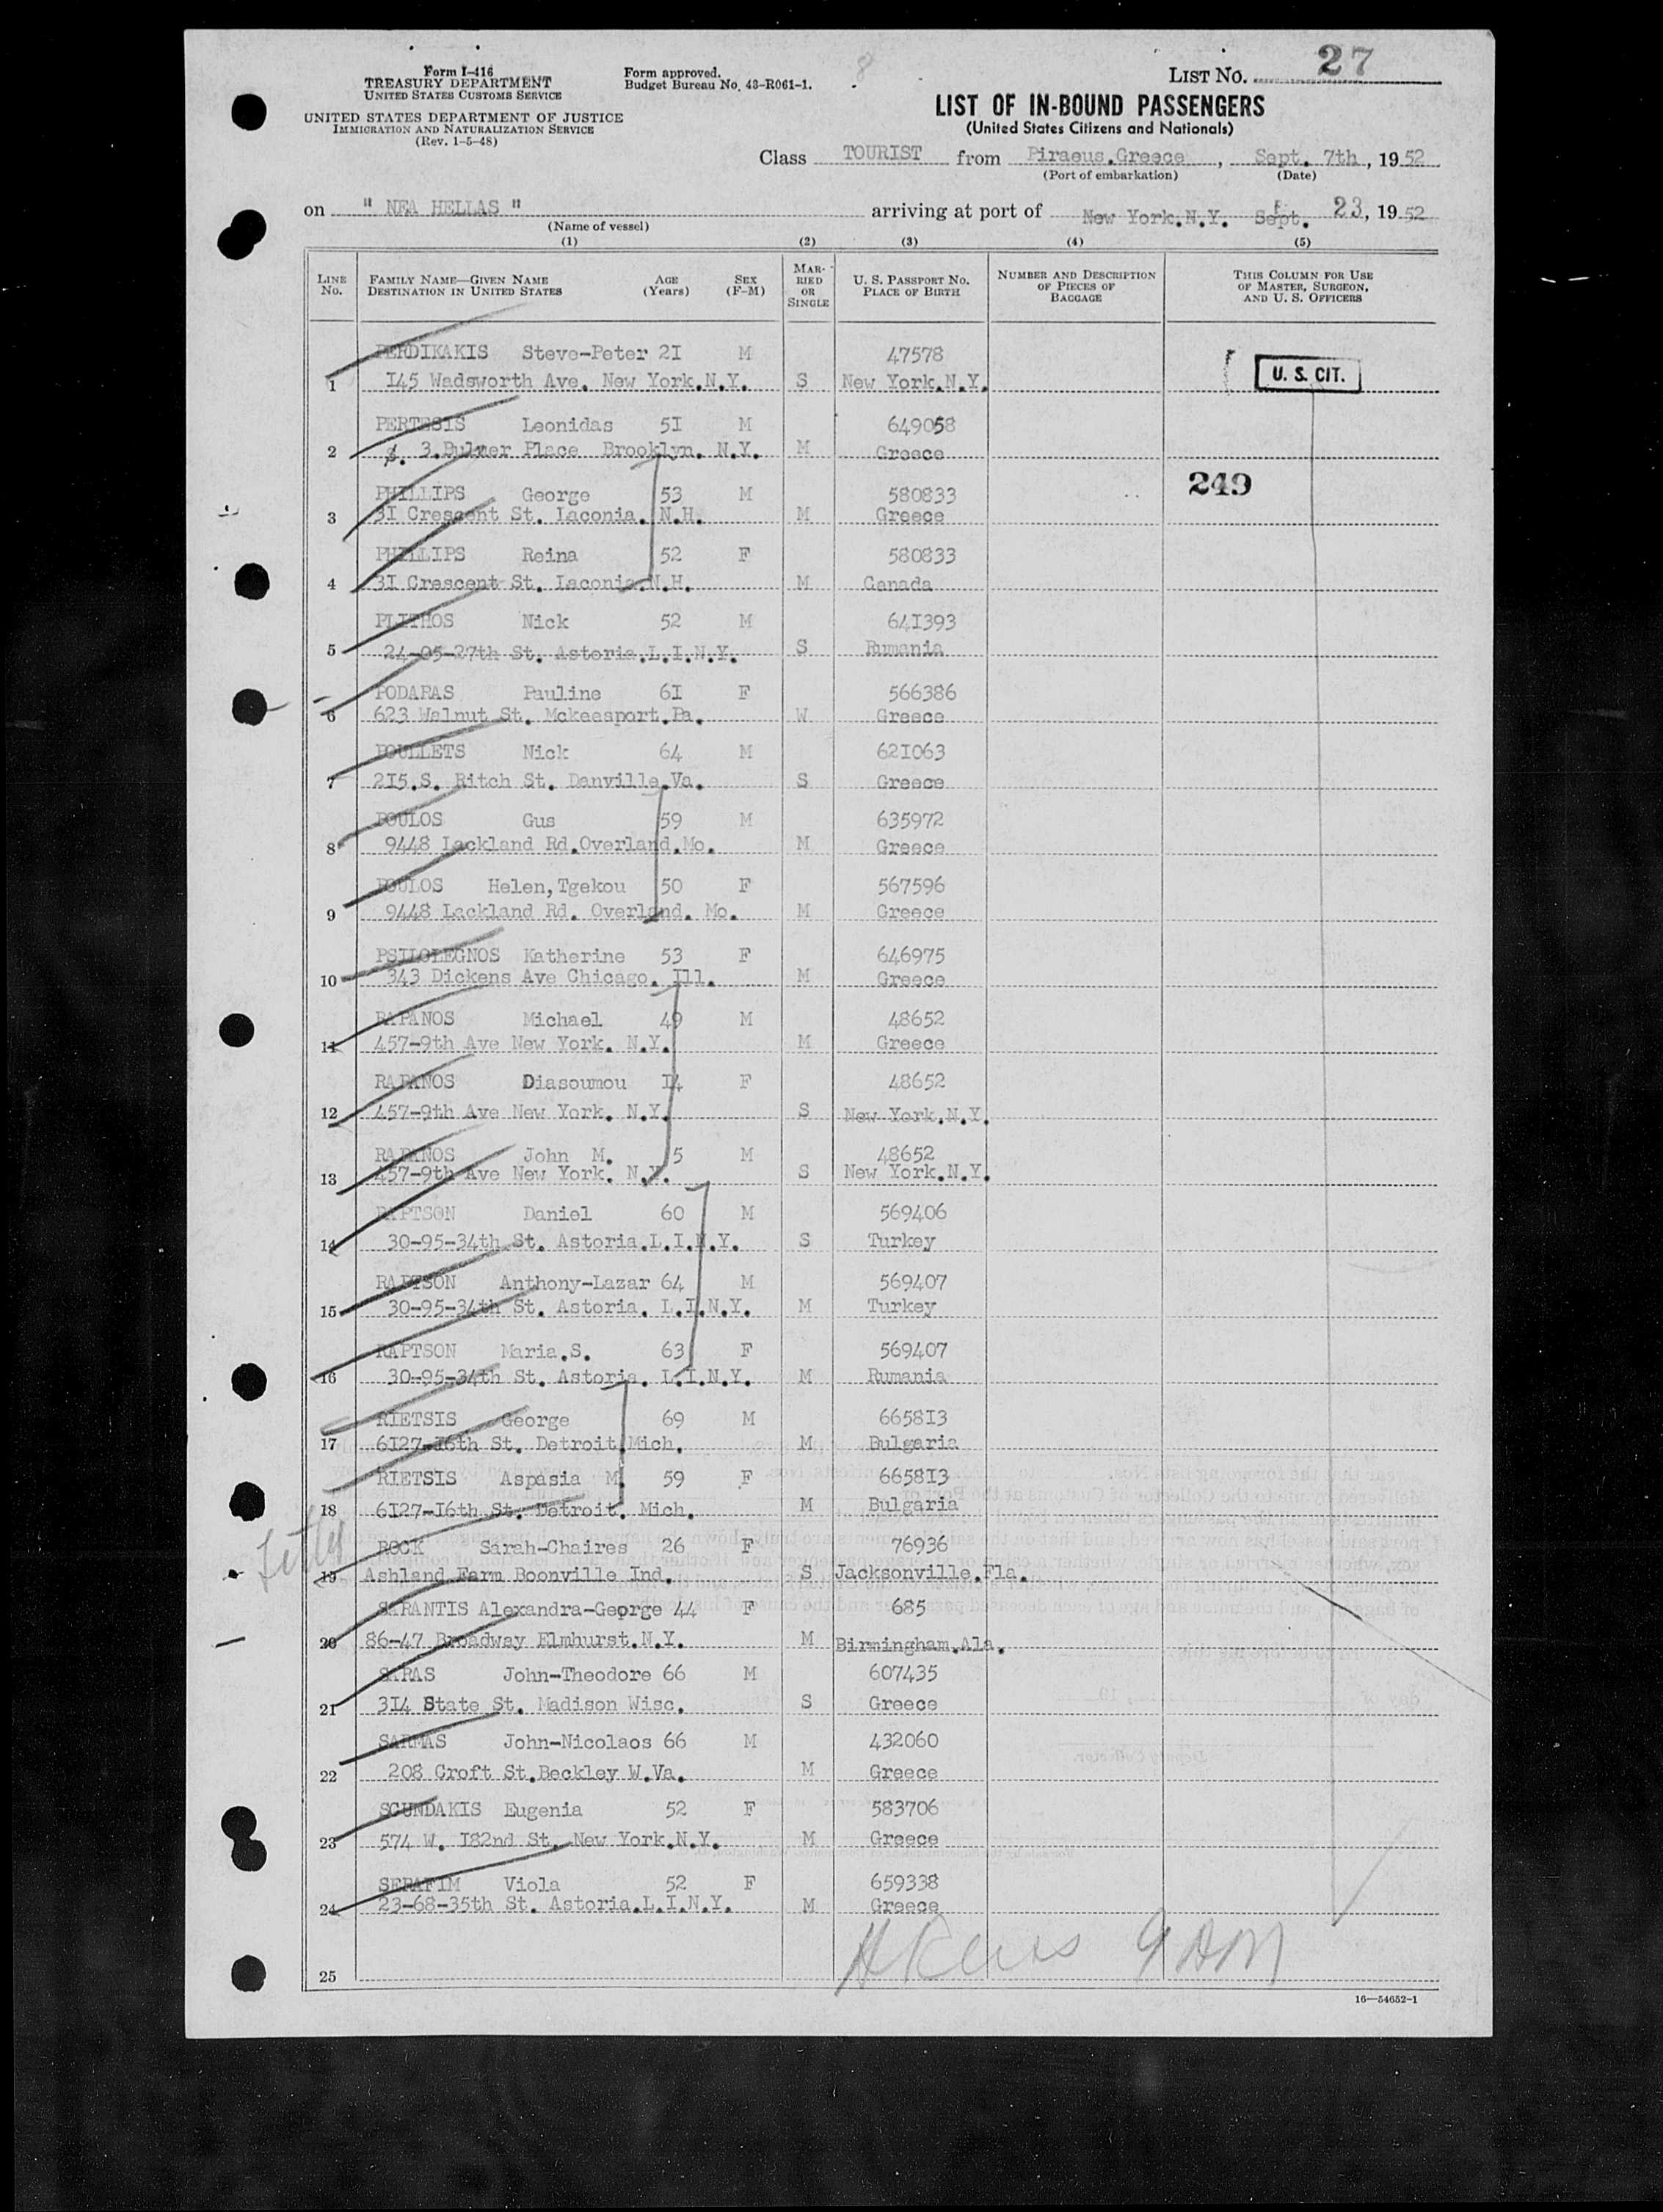 8
Form I-416
TREASURY DEPARTMENT
UNITED STATES CUSTOMS SERVICE
UNITED STATES DEPARTMENT OF JUSTICE
IMMIGRATION AND NATURALIZATION SERVICE
(Rev. 1-5-48)
Form approved.
Budget Bureau No. 43-R061-1.
LIST NO. 27
LIST OF IN-BOUND PASSENGERS
(United States Citizens and Nationals)
Class TOURIST from Piraeus.Greece , Sept. 7th, 1952
(Port of embarkation) (Date)
on " NEA HELLAS " arriving at port of New York.N.Y. Sept. 23, 1952
(Name of vessel)
(1) (2) (3) (4) (5)
LINE No. FAMILY NAME—GIVEN NAME DESTINATION IN UNITED STATES AGE (Years) SEX (F-M) MARRIED OR SINGLE U. S. PASSPORT NO. PLACE OF BIRTH NUMBER AND DESCRIPTION OF PIECES OF BAGGAGE THIS COLUMN FOR USE OF MASTER, SURGEON, AND U. S. OFFICERS
PERDIKAKIS Steve-Peter 2I M 47578
1 I45 Wadsworth Ave. New York.N.Y. S New York.N.Y. U. S. CIT.
PERTESIS Leonidas 5I M 649058
2 3.Bulmer Place Brooklyn. N.Y. M Greece
249
PHILLIPS George 53 M 580833
3 3I Crescent St. Laconia. N.H. M Greece
PHILLIPS Reina 52 F 580833
4 3I Crescent St. Laconia N.H. M Canada
PLITHOS Nick 52 M 64I393
5 24-05-27th St. Astoria.L.I.N.Y. S Rumania
PODARAS Pauline 6I F 566386
6 623 Walnut St. Mckeesport.Pa. W Greece
POULLETS Nick 64 M 62I063
7 2I5.S. Ritch St. Danville.Va. S Greece
POULOS Gus 59 M 635972
8 9448 Lackland Rd.Overland.Mo. M Greece
POULOS Helen,Tgekou 50 F 567596
9 9448 Lackland Rd. Overland. Mo. M Greece
PSILOLEGNOS Katherine 53 F 646975
10 343 Dickens Ave Chicago. Ill. M Greece
RAPANOS Michael 49 M 48652
11 457-9th Ave New York. N.Y. M Greece
RAPANOS Diasoumou I4 F 48652
12 457-9th Ave New York. N.Y. S New York.N.Y.
RAPANOS John M. 5 M 48652
13 457-9th Ave New York. N.Y. S New York.N.Y.
RAPTSON Daniel 60 M 569406
14 30-95-34th St. Astoria.L.I.N.Y. S Turkey
RAPTSON Anthony-Lazar 64 M 569407
15 30-95-34th St. Astoria. L.I.N.Y. M Turkey
RAPTSON Maria.S. 63 F 569407
16 30-95-34th St. Astoria. L.I.N.Y. M Rumania
RIETSIS George 69 M 6658I3
17 6I27-I6th St. Detroit Mich. M Bulgaria
RIETSIS Aspasia M. 59 F 6658I3
18 6I27-I6th St. Detroit. Mich. M Bulgaria
ROCK Sarah-Chaires 26 F 76936
19 Ashland Farm Boonville Ind. S Jacksonville.Fla.
SARANTIS Alexandra-George 44 F 685
20 86-47 Broadway Elmhurst.N.Y. M Birmingham.Ala.
SARAS John-Theodore 66 M 607435
21 3I4 State St. Madison Wisc. S Greece
SARMAS John-Nicolaos 66 M 432060
22 208 Croft St.Beckley W.Va. M Greece
SCUNDAKIS Eugenia 52 F 583706
23 574 W. I82nd St. New York.N.Y. M Greece
SERAFIM Viola 52 F 659338
24 23-68-35th St. Astoria.L.I.N.Y. M Greece
9 AM
25
16—54652-1